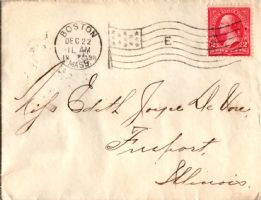 BOSTON
DEC 22
11 AM
MASS
E
2 2
Miss Edith Joyce De Vore,
Freeport,
Illinois.